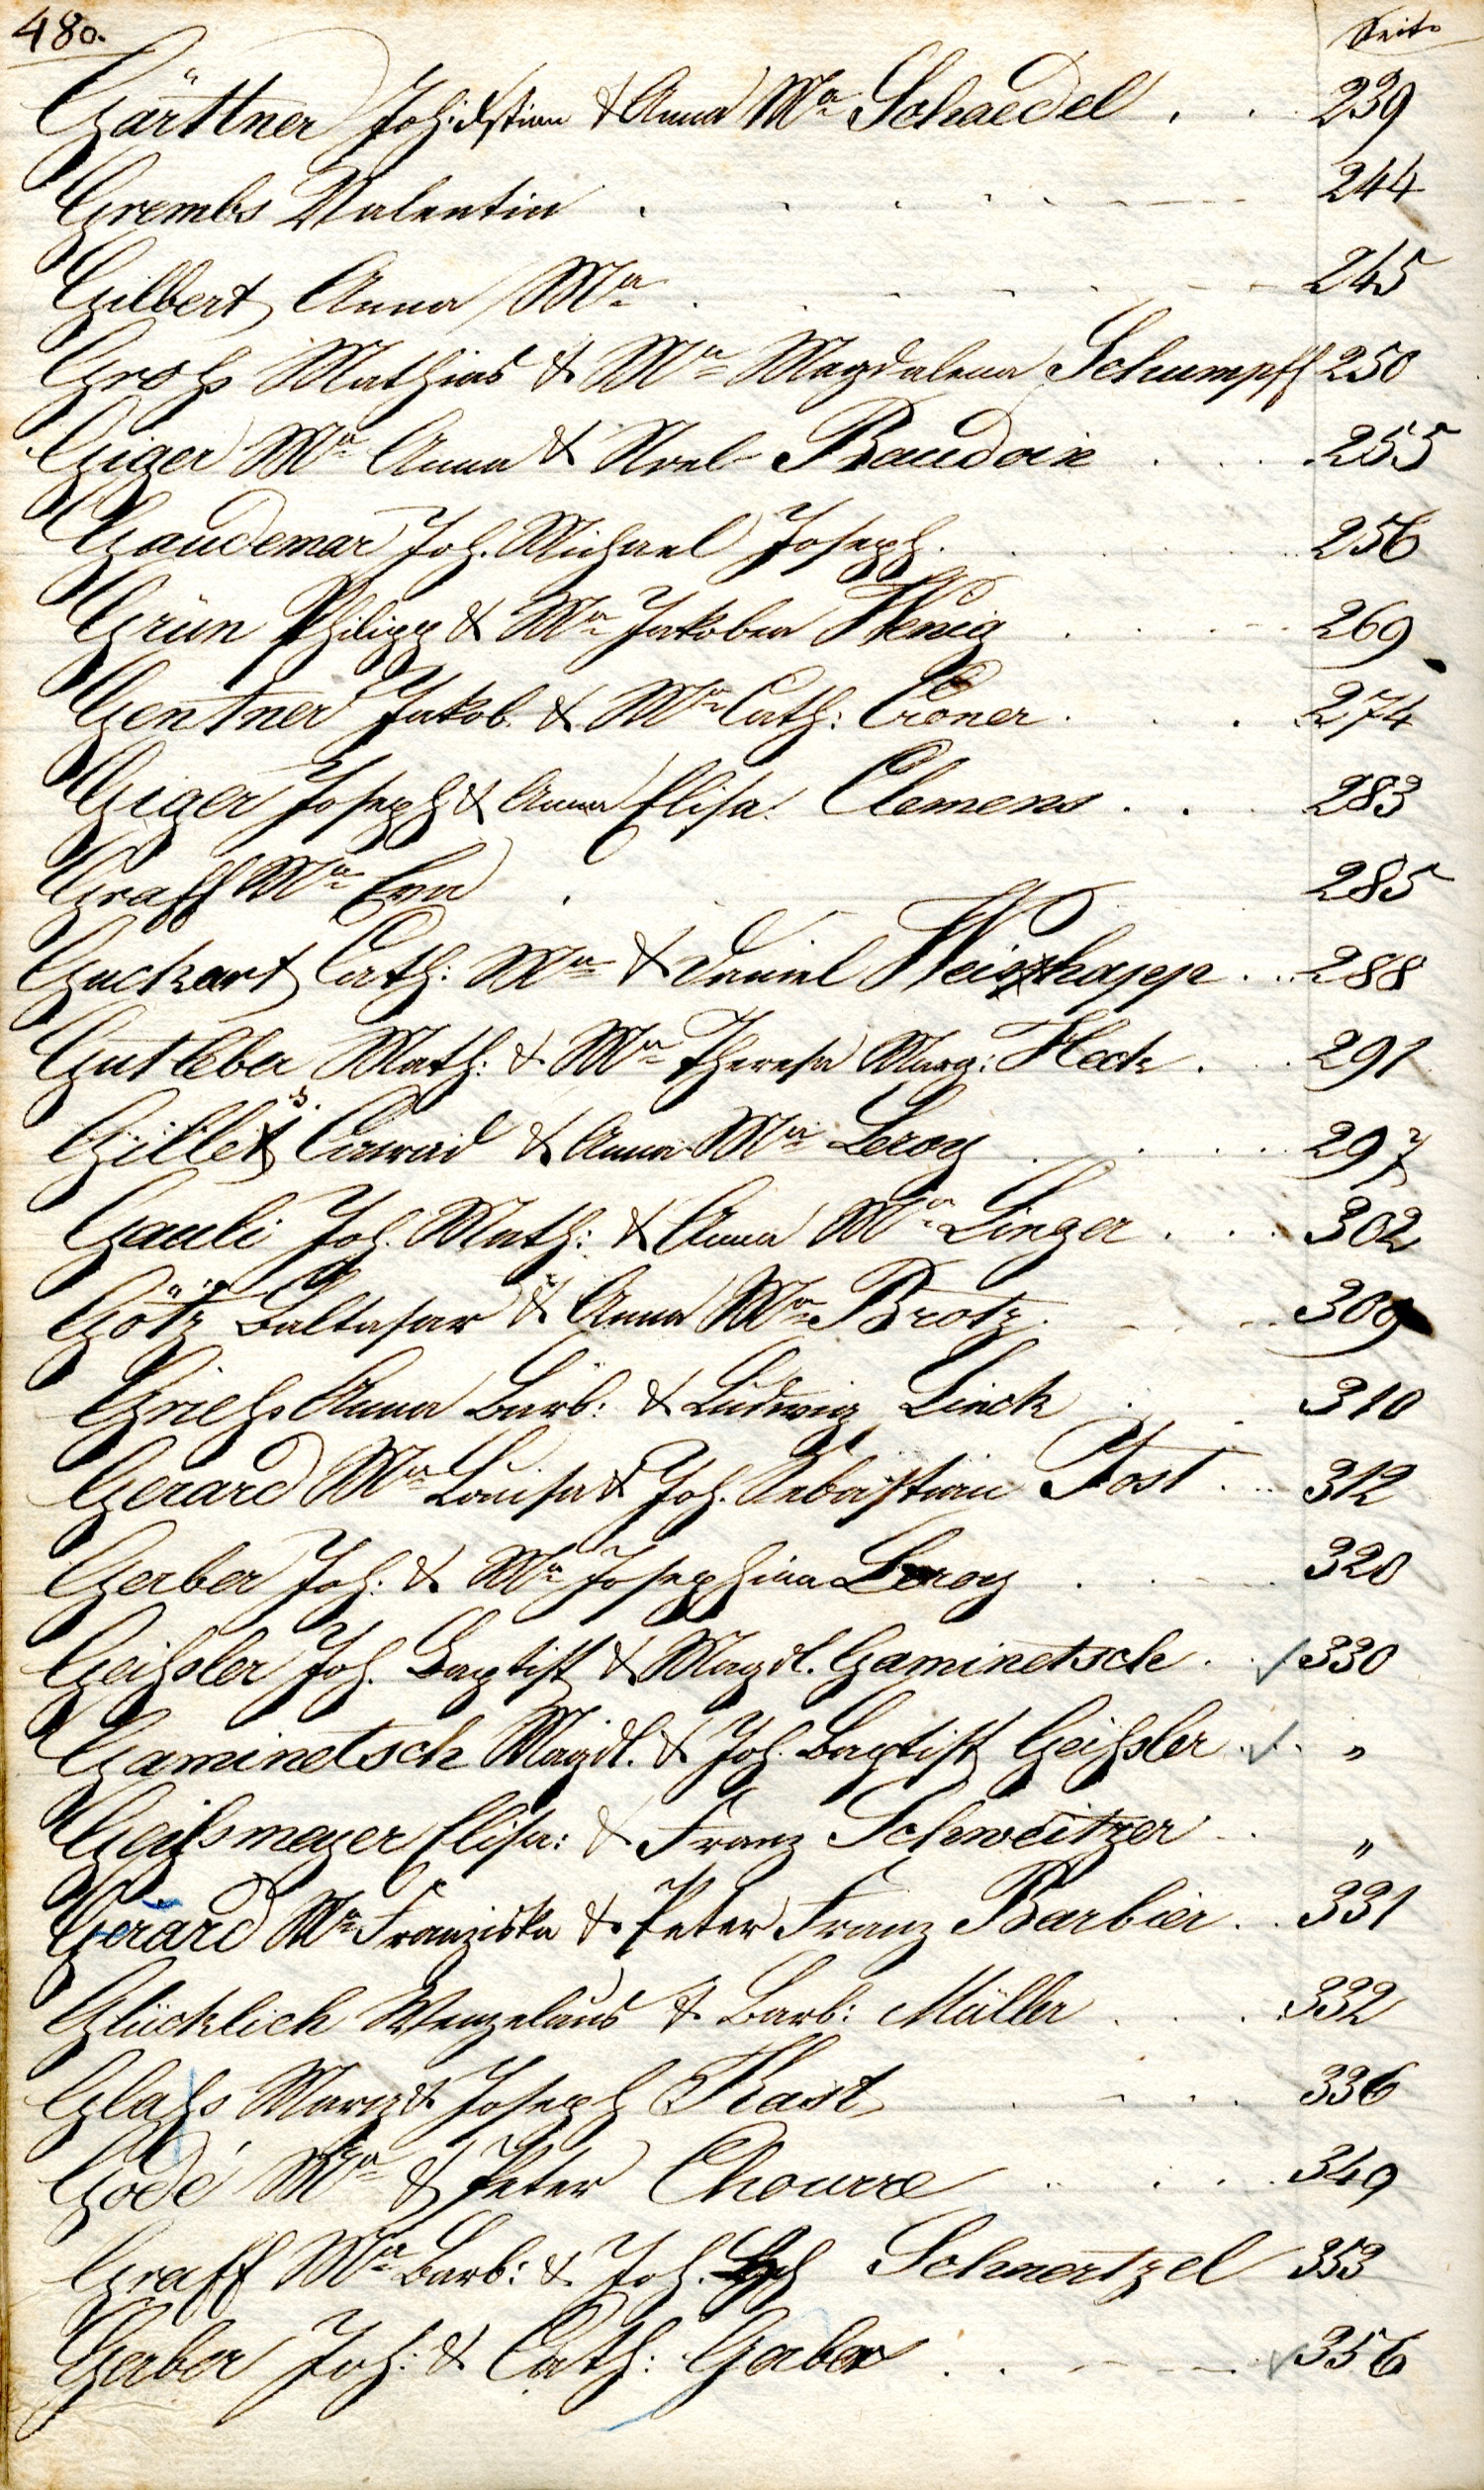 480.
Seite
Gärttner Joh. Istian & Anna Ma Schaedel . . 239
Grembs Valentin . . . . . . 244
Gilbert Anna Ma . . . . . 245
Groß Mathias & Ma Magdalena Schumpff 250
Giger Ma Anna & Noel Baudoin . . . 255
Gaudemar Joh. Michael Joseph. . . . 256
Grün Philipp & Ma Jakobea Wenig . . . 269
Gentner Jakob & Ma Cath: Croner . . . 274
Giger Joseph & Anna Elisa: Clemens . . 283
Graff Ma Eva . . . 285
Guckert Cath: Ma & Daniel Weiskapp . . 288
Gutleber Math: & Ma Theresa Marg: Heck . . 291
Gillet Conrad & Anna Ma Leroy . . . 297
Gauli Joh. Math: & Anna Ma Linger . . . 302
Götz Baltasar & Anna Ma Brotz . . . 309
Grieß Anna Barb: & Ludwig Linck . . 310
Gerard Ma Louisa & Joh. Sebastian Jost . . 312
Gerber Joh. & Ma Josephina Leroy . . . 320
Geißler Joh. Baptist & Magdl. Gaminetsch . . 330
Gaminetsch Magdl. & Joh. Baptist Geißler . . "
Geißmeyer Elisa: & Franz Schweitzer . . "
Gerard Ma Franziska & Peter Franz Barbier . . 331
Glücklich Wenzelaus & Barb: Müller . . . 332
Glaß Marg & Joseph Rast . . . 336
Godé Ma & Peter Chourre . . . 349
Graff Ma Barb: & Joh. Schnertzel 353
Gerber Joh: & Cath: Gerber . . . 356